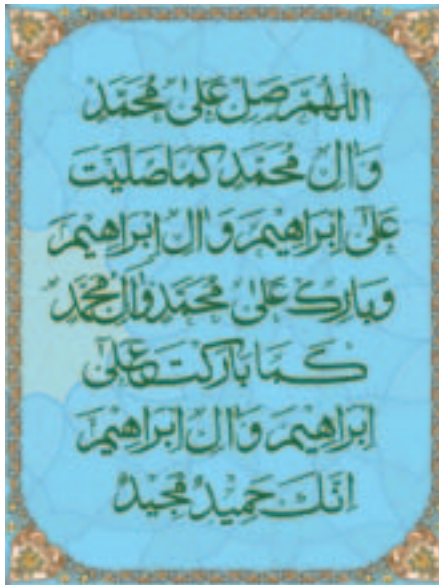 اللهم صل على محمد
وال محمد كما صليت
على ابراهيم وال ابراهيم
وبارك على محمد وال محمد
كما باركت على
ابراهيم وال ابراهيم
انك حميد مجيد